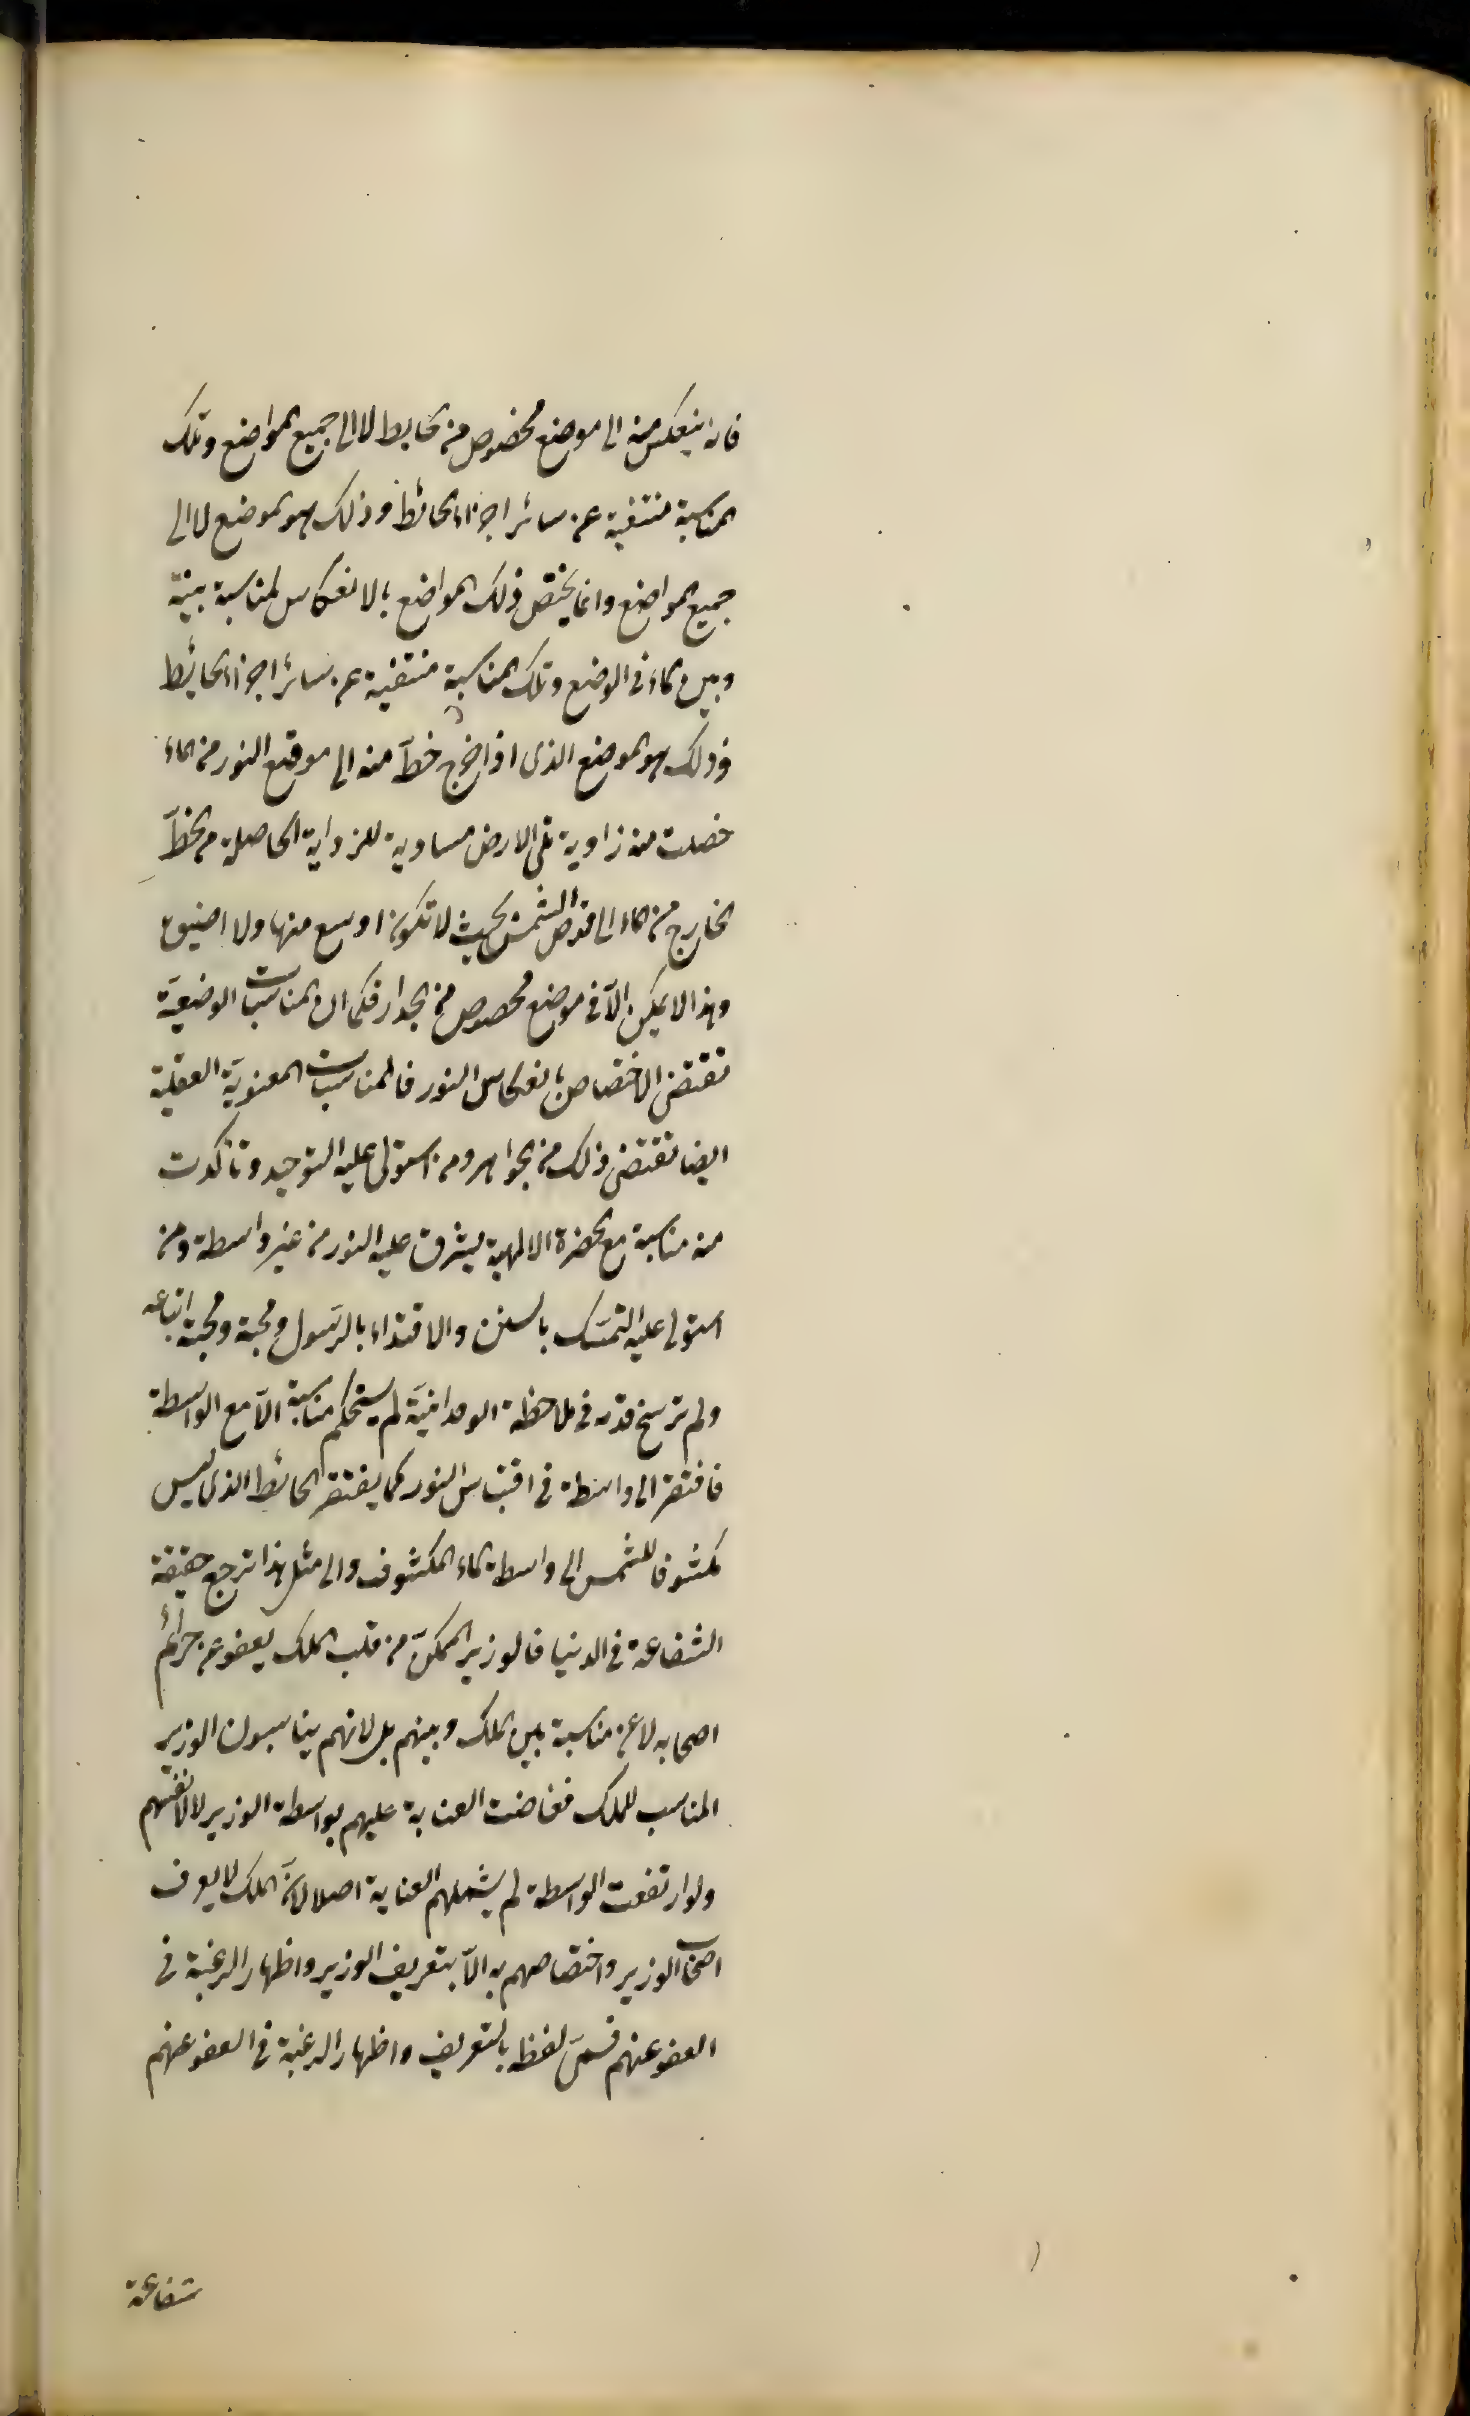 فانه ينعكس منه الى موضع مخصوص من الحايط لا الى جميع المواضع وتلك
المناسبة منتفية عن سائر اجزاء الحائط وذلك هو الموضع لا الى
جميع المواضع وانما يختص ذلك المواضع بالانعكاس لمناسبة بينه
وبين الماء في الوضع وتلك المناسبة منتفية عن سائر اجزاء الحايط
وذلك هو الموضع الذى اذا خرج خطّ منه الى موقع النور من الماء
حصلت منه زاوية تلى الارض مساوية للزواية الحاصلة من الخطّ
الخارج من الماء الى قرص الشمس بحيث لا تكون اوسع منها ولا اضيق
وهذا لا يمكن الّا في موضع مخصوص من الجدار فكما ان المناسبات الوضعيّة
تقتضى الاختصاص بانعكاس النور فالمناسبات المعنويّة العقلية
ايضا تقتضى ذلك من الجواهر ومن استولى عليه التوحيد وتاكدت
منه مناسبة مع الحضرة الالهية يشرق عليه النور من غير واسطة ومن
استولى عليه التمسّك بالسنن والاقتداء بالرّسول ومحبة ومحبة اتباعه
ولم ترسخ قدمه في ملاحظة الوحدانيّة لم يستحكم مناسبة الّا مع الواسطة
فافتقر الى واسطة في اقتباس النور كما يفتقر الحائط الذى ليس
مكشوفا للشمس الى واسطة الماء المكشوف والى مثل هذا ترجع حقيقة
الشفاعة في الدنيا فالوزير الممكّن من قلب الملك يعفو عن جرائم
اصحابه لا عن مناسبة بين الملك وبينهم بل لانهم يناسبون الوزير
المناسب للملك ففاضت العناية عليهم بواسطة الوزير لا لانفسهم
ولو ارتفعت الواسطة لم يشملهم العناية اصلا لانّ الملك لا يعرف
اصحاب الوزير واختصاصهم به الّا بتعريف الوزير واظهار الرغبة في
العفو عنهم فسمّى لفظه بالتعريف واظهار الرغبة في العفو عنهم
شفاعة